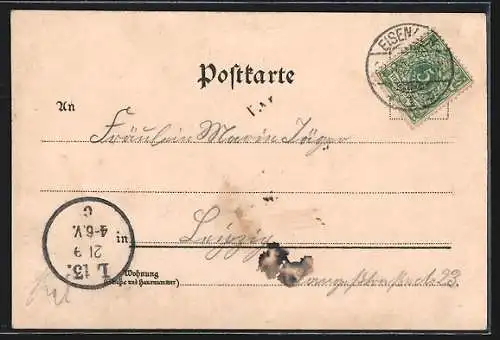 EISEN
Postkarte
An
Fräulein Marie Jäger
in Leipzig
Wohnung
(Straße und Hausnummer)
Langestraße 23.
L 13.
21 9
4-6.V.
c